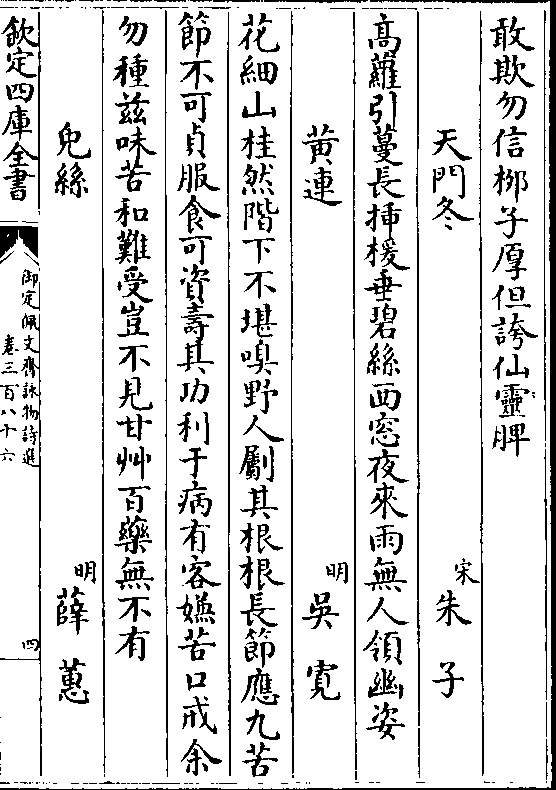 敢欺勿信栁子厚但誇仙靈脾
天門冬　宋朱子
高蘿引蔓長揷楥垂碧絲西窓夜來雨無人領幽姿
黄連　明吳寛
花細山桂然階下不堪嗅野人劚其根根長節應九苦
節不可貞服食可資壽其功利于病有客嫌苦口戒余
勿種兹味苦和難受豈不見甘艸百藥無不有
兔絲　明薛蕙
欽定四庫全書
御定佩文齋詠物詩選
卷三百八十六
四